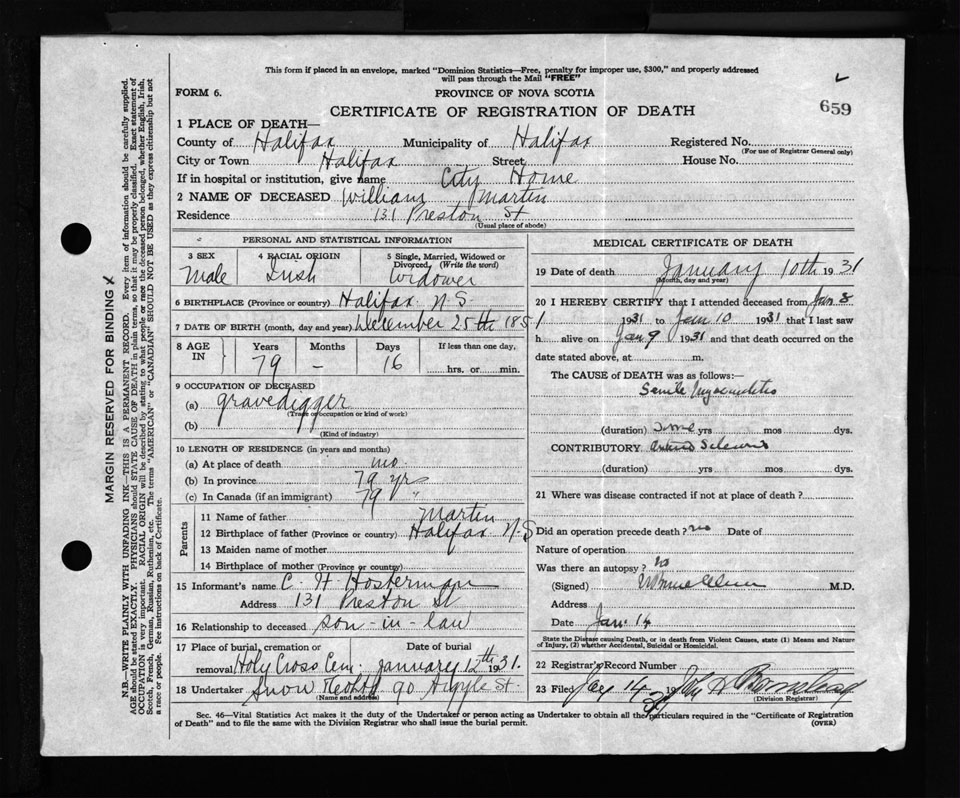 This form if placed in an envelope, marked "Dominion Statistics—Free, penalty for improper use, $300," and properly addressed
will pass through the Mail "FREE"
FORM 6. PROVINCE OF NOVA SCOTIA
659
CERTIFICATE OF REGISTRATION OF DEATH
1 PLACE OF DEATH—
County of Halifax Municipality of Halifax Registered No.
(For use of Registrar General only)
City or Town Halifax Street House No.
If in hospital or institution, give name City Home
2 NAME OF DECEASED William Martin
Residence 131 Preston St
(Usual place of abode)
PERSONAL AND STATISTICAL INFORMATION
3 SEX 4 RACIAL ORIGIN 5 Single, Married, Widowed or
Divorced, (Write the word)
Male Irish Widower
6 BIRTHPLACE (Province or country) Halifax N.S
7 DATE OF BIRTH (month, day and year) December 25th 1851
8 AGE IN Years Months Days If less than one day,
79 – 16 hrs. or min.
9 OCCUPATION OF DECEASED
(a) gravedigger
(Trade occupation or kind of work)
(b)
(Kind of industry)
10 LENGTH OF RESIDENCE (in years and months)
(a) At place of death mo.
(b) In province 79 yrs
(c) In Canada (if an immigrant) 79 "
Parents
11 Name of father Martin
12 Birthplace of father (Province or country) Halifax N.S
13 Maiden name of mother
14 Birthplace of mother (Province or country)
15 Informant's name C. H Hosterman
Address 131 Preston St
16 Relationship to deceased son-in-law
17 Place of burial, cremation or Date of burial
removal Holy Cross Cem. January 12th 1931.
18 Undertaker Snow 90 Argyle St
(Name and address)
MEDICAL CERTIFICATE OF DEATH
19 Date of death January 10th 1931
(Month, day and year)
20 I HEREBY CERTIFY that I attended deceased from Jan 8
1931 to Jan 10 1931 that I last saw
h alive on Jan 9 1931 and that death occurred on the
date stated above, at m.
The CAUSE of DEATH was as follows:—
Senile Myocarditis
(duration) some yrs mos dys.
CONTRIBUTORY
(duration) yrs mos dys.
21 Where was disease contracted if not at place of death?
Did an operation precede death? no Date of
Nature of operation
Was there an autopsy? no
(Signed) M.D.
Address
Date Jan. 14
State the Disease causing Death, or in death from Violent Causes, state (1) Means and Nature
of Injury, (2) whether Accidental, Suicidal or Homicidal.
22 Registrar's Record Number
23 Filed Jany 14 1931
(Division Registrar)
Sec. 46—Vital Statistics Act makes it the duty of the Undertaker or person acting as Undertaker to obtain all the particulars required in the "Certificate of Registration
of Death" and to file the same with the Division Registrar who shall issue the burial permit. (OVER)
MARGIN RESERVED FOR BINDING
N.B.—WRITE PLAINLY WITH UNFADING INK—THIS IS A PERMANENT RECORD. Every item of information should be carefully supplied.
AGE should be stated EXACTLY. PHYSICIANS should STATE CAUSE OF DEATH in plain terms, so that it may be properly classified. Exact statement of
OCCUPATION is very important. RACIAL ORIGIN will be described by stating to what people or race the deceased person belonged, whether English, Irish,
Scotch, French, German, Russian, Ruthenian, etc. The terms "AMERICAN" or "CANADIAN" SHOULD NOT BE USED as they express citizenship but not
a race or people. See instructions on back of Certificate.